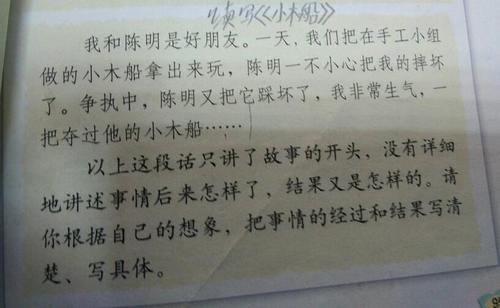 续写《小木船》
我和陈明是好朋友。一天，我们把在手工小组
做的小木船拿出来玩，陈明一不小心把我的摔坏
了。争执中，陈明又把它踩坏了，我非常生气，一
把夺过他的小木船……
以上这段话只讲了故事的开头，没有详细
地讲述事情后来怎样了，结果又是怎样的。请
你根据自己的想象，把事情的经过和结果写清
楚、写具体。